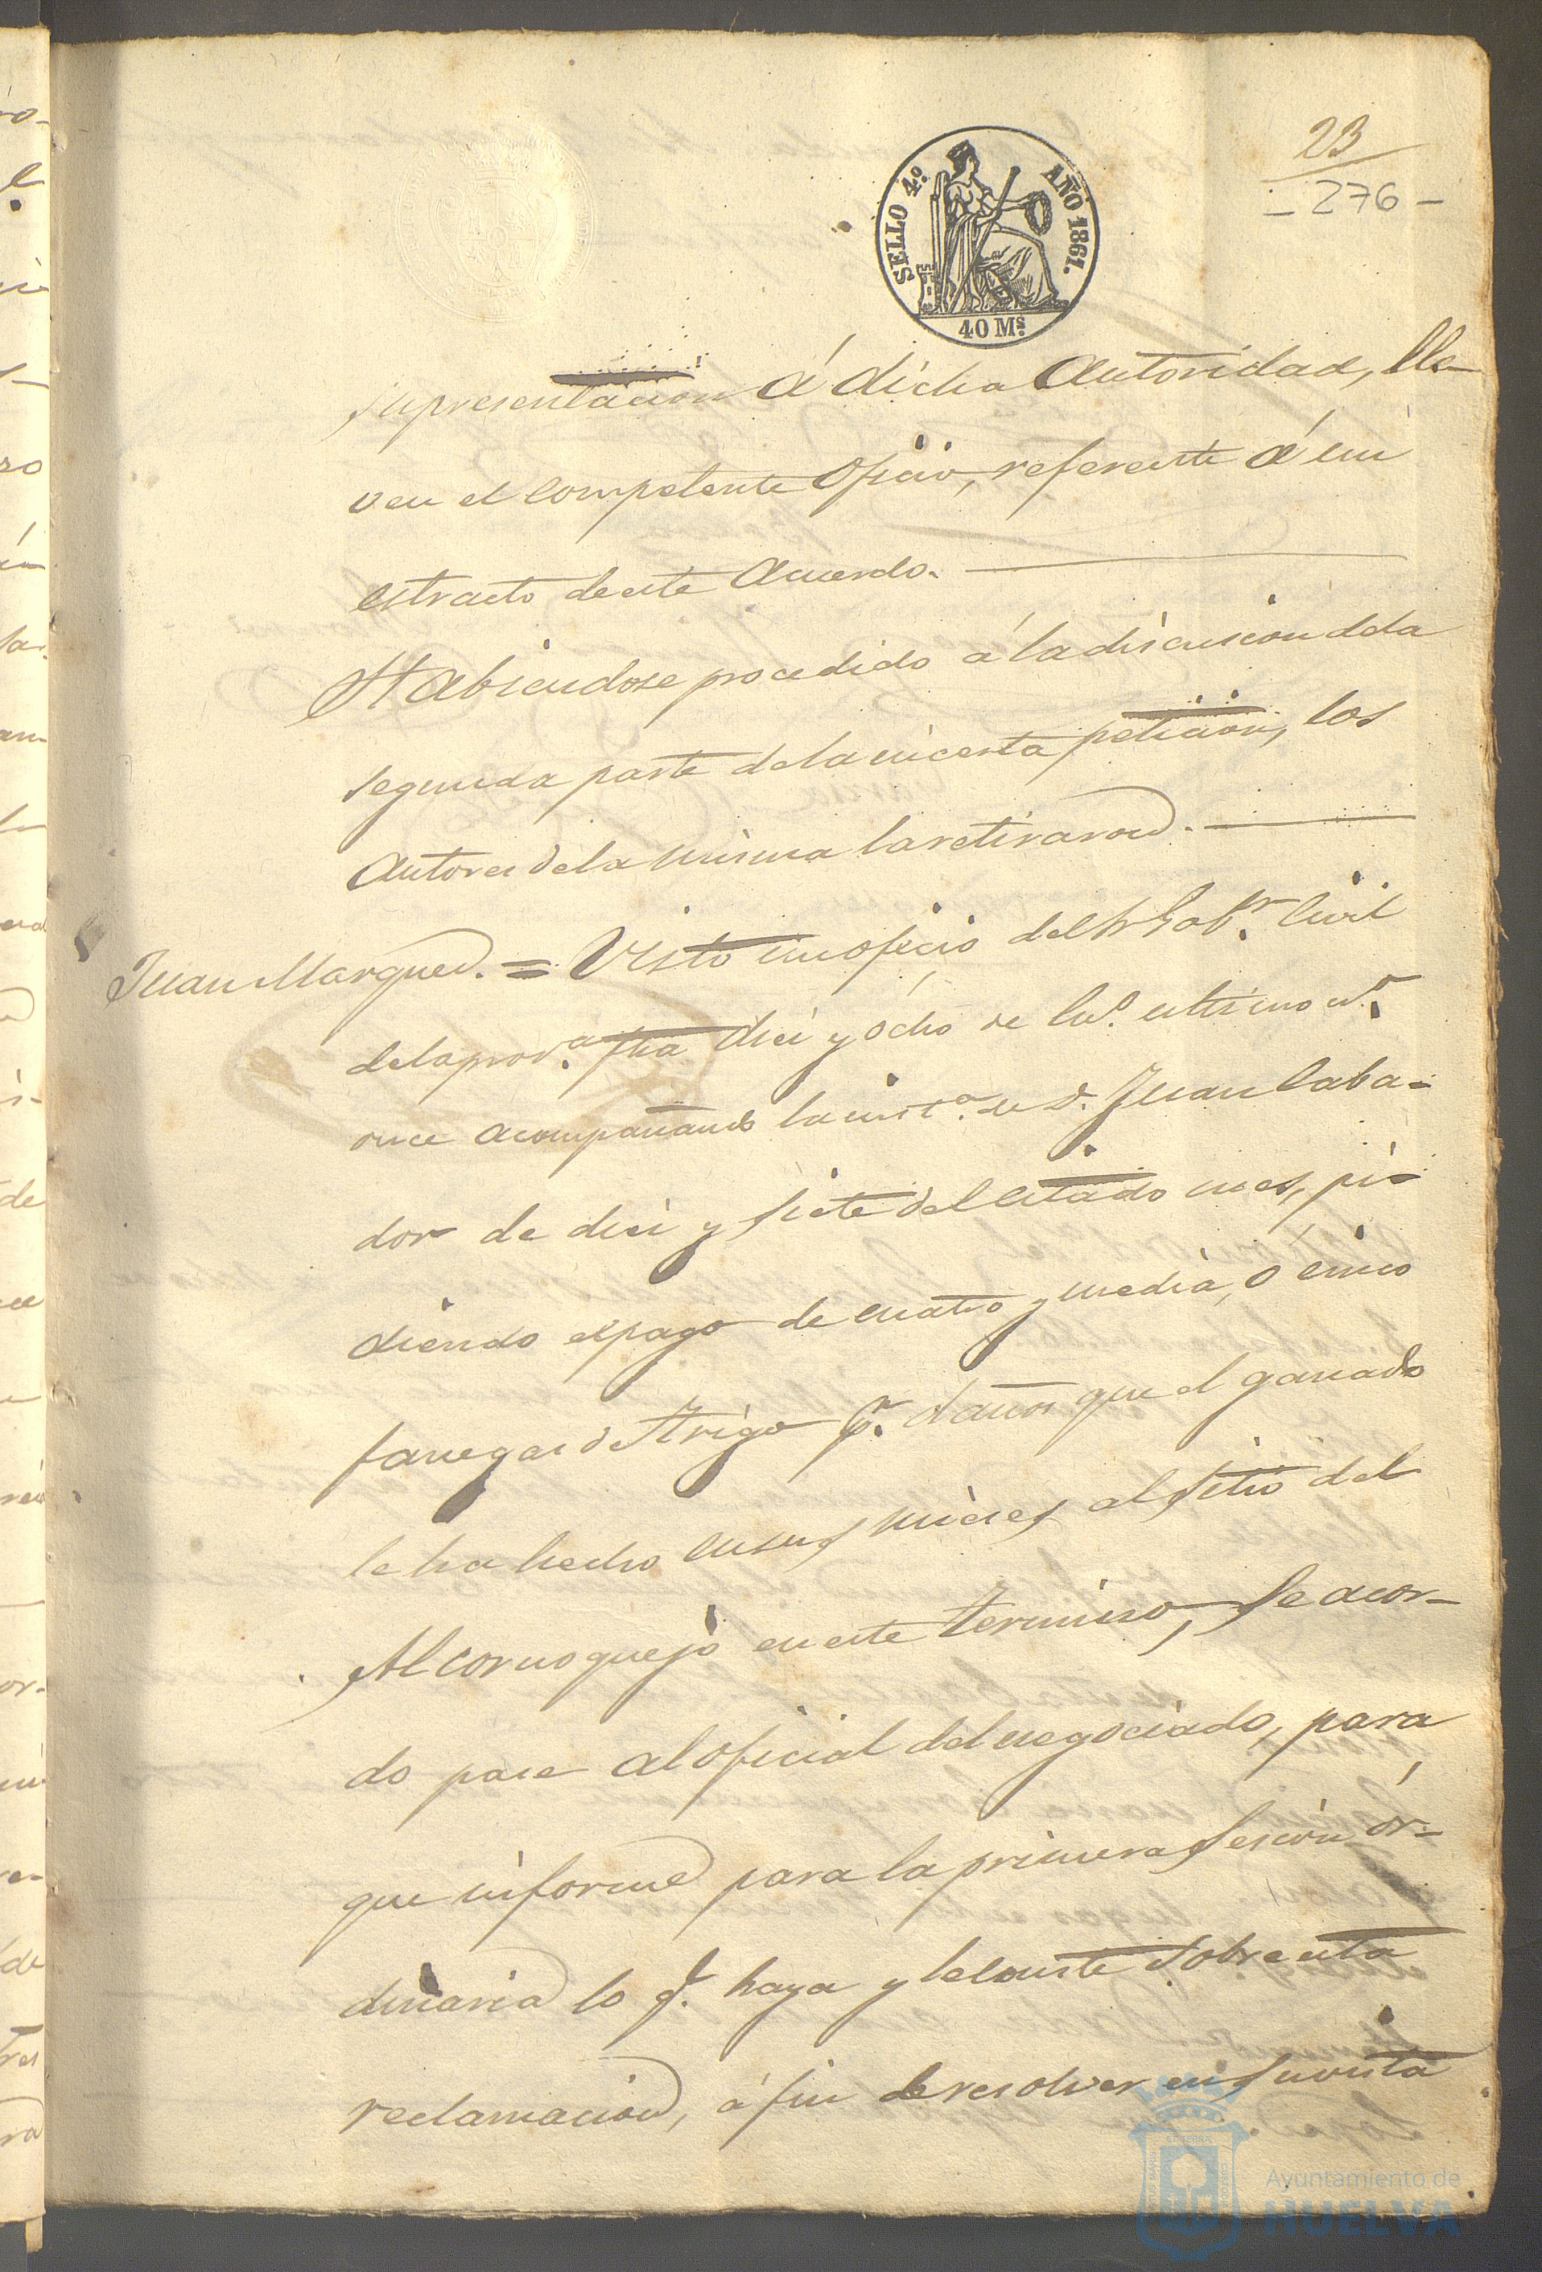 23
- 276 -
SELLO 4.º AÑO 1861.
40 Ms.
supresentacion á dicha Autoridad, lle-
ven el competente oficio, referente á un
estracto de este Acuerdo.
Habiendose procedido á la discusion dela
segunda parte dela incerta peticion, los
Autores dela misma la retiraron.
Juan Marquez. = Visto un oficio del Sr Gobr. Civil
dela prova. fha diez y ócho de En.º ultimo n.º
once acompañando la insta. de D. Juan Laba-
dor de diez y siete del citado mes, pi-
diendo el pago de cuatro y media, ó cinco
fanegas de trigo pr. daños que el ganado
le ha hecho en sus mieses al sitio del
Alcornoquejo en este termino, Se acor-
do pase al oficial del negociado, para
que informe para la primera sesion ór-
dinaria lo q. haya y le conste sobre esta
reclamacion, á fin de resolver en su vista
Ayuntamiento de
HUELVA